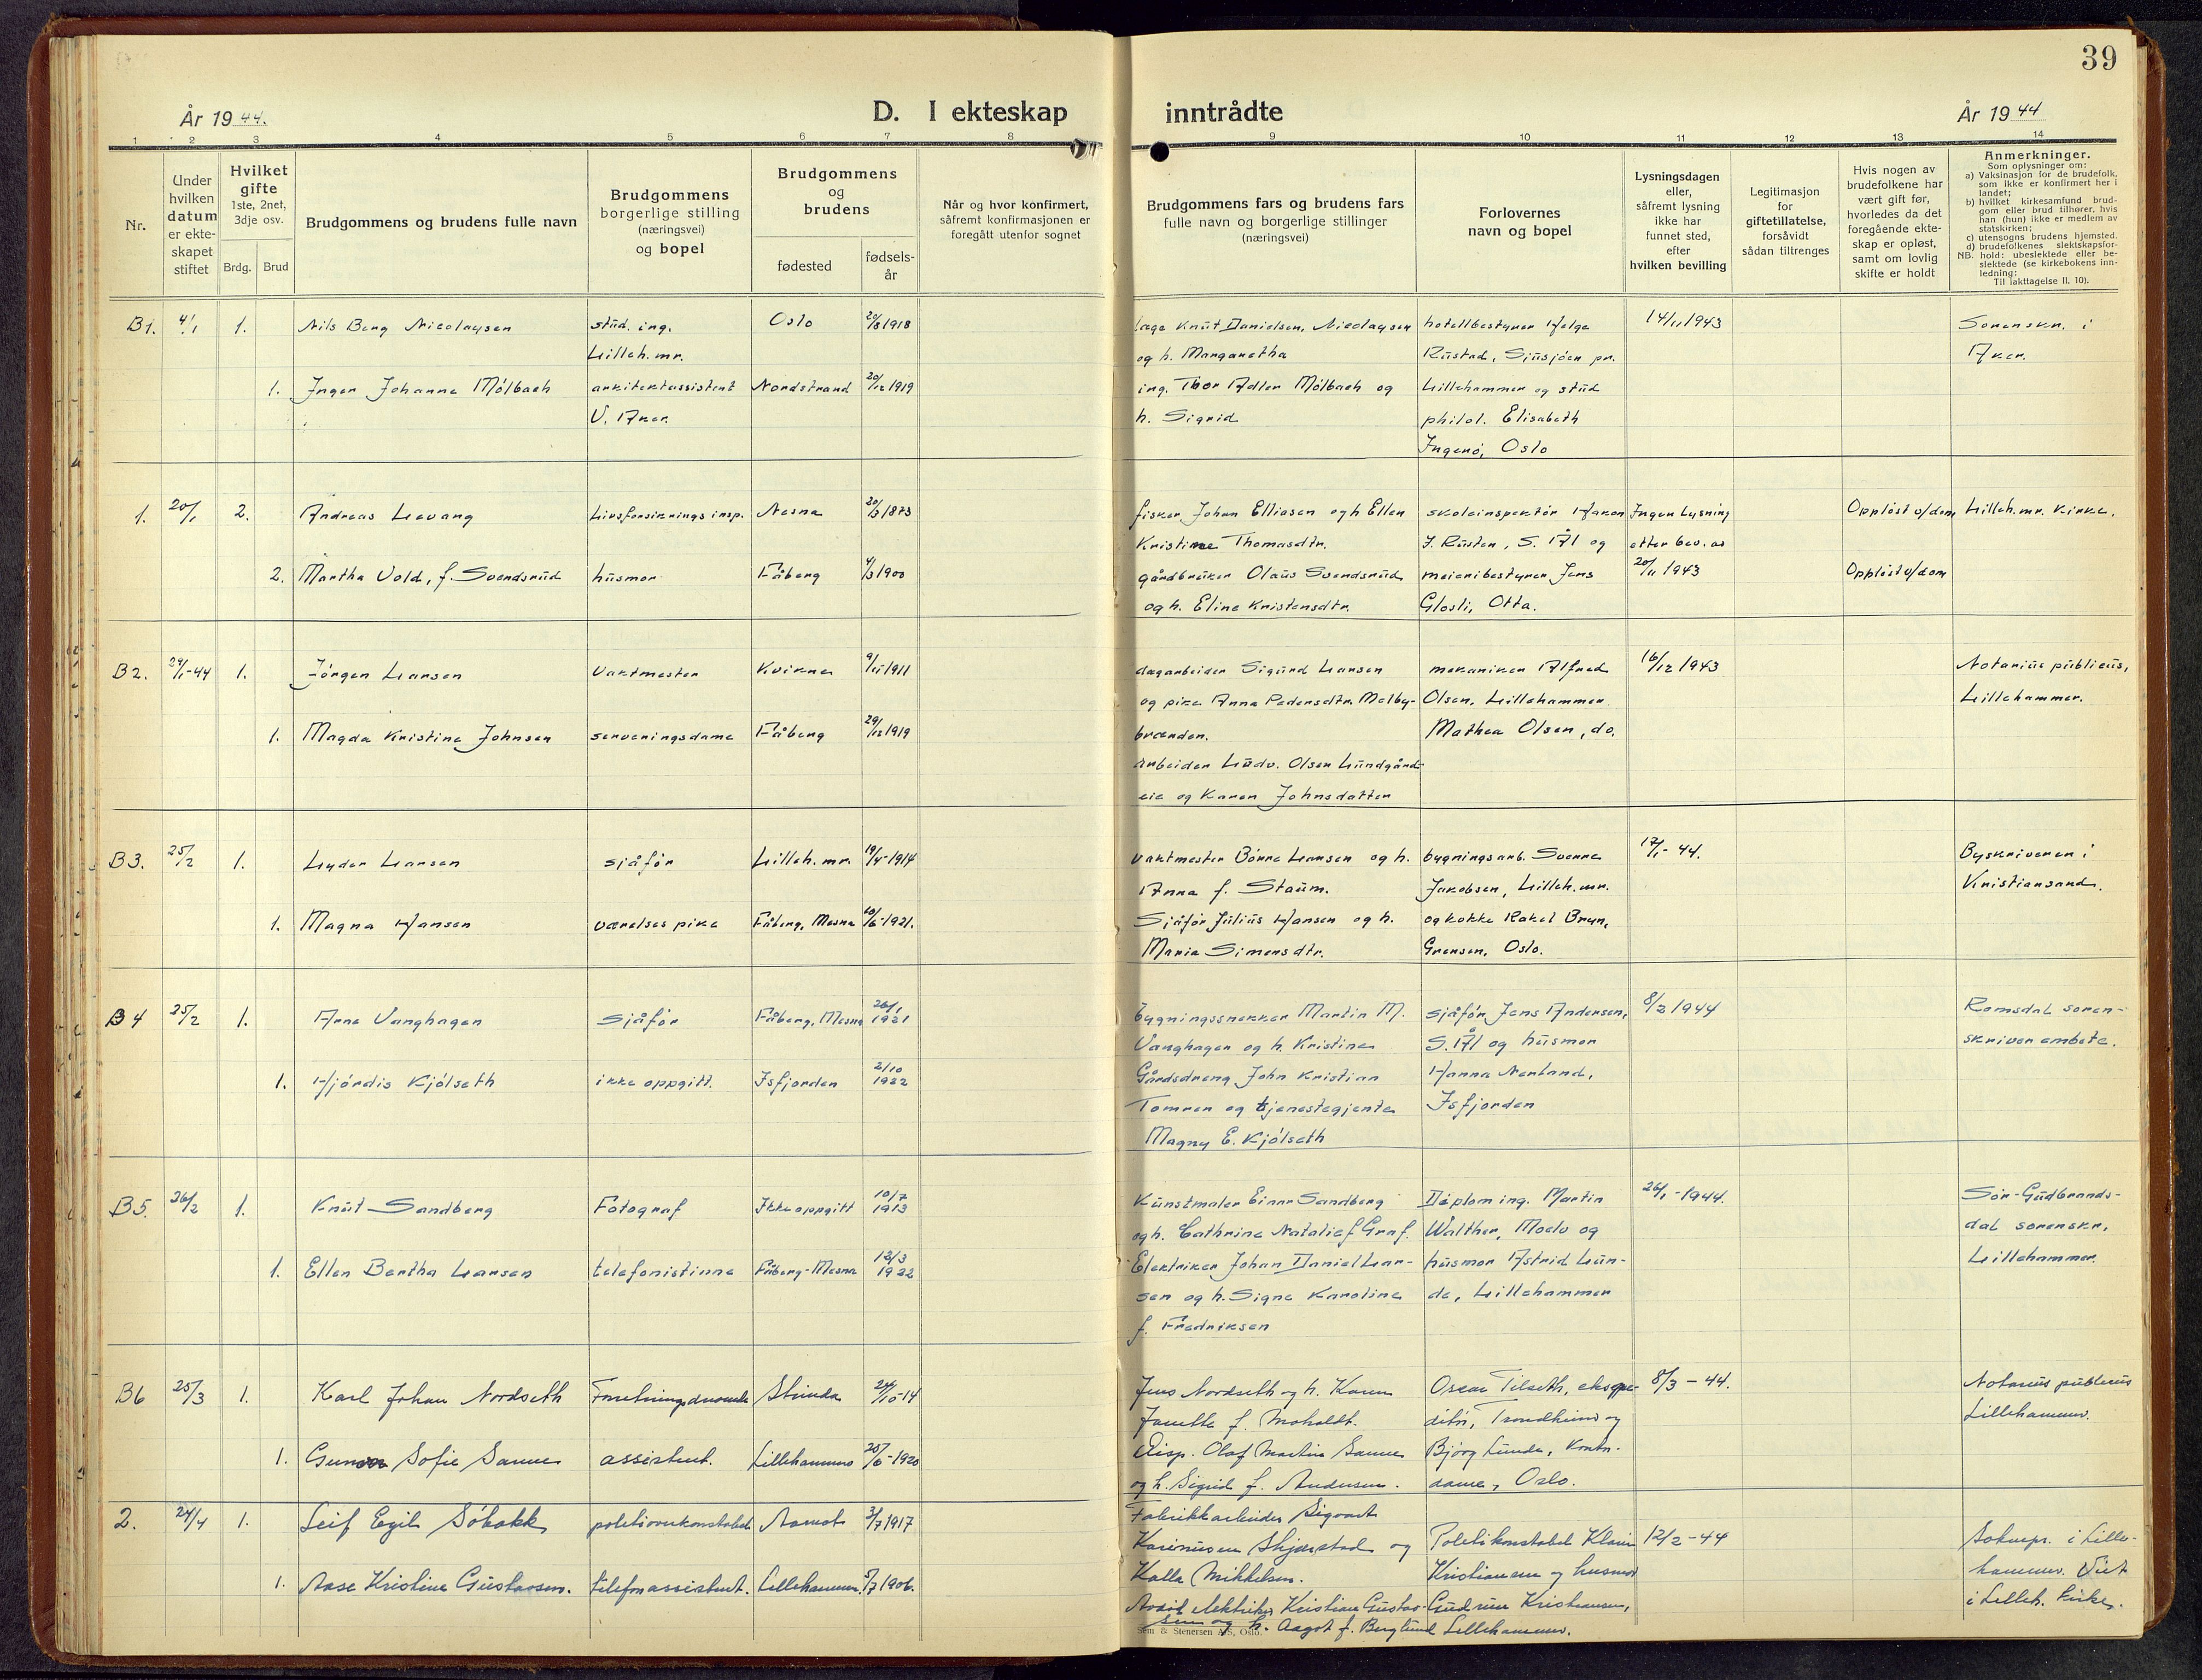 39
År 1944.
D. I ekteskap inntrådte
År 1944
1 2 3 4 5 6 7 8 9 10 11 12 13 14
Nr.
Under hvilken datum er ekteskapet stiftet
Hvilket gifte 1ste, 2net, 3dje osv.
Brdg. Brud
Brudgommens og brudens fulle navn
Brudgommens borgerlige stilling (næringsvei) og bopel
Brudgommens og brudens
fødested
fødselsår
Når og hvor konfirmert, såfremt konfirmasjonen er foregått utenfor sognet
Brudgommens fars og brudens fars fulle navn og borgerlige stillinger (næringsvei)
Forlovernes navn og bopel
Lysningsdagen eller, såfremt lysning ikke har funnet sted, efter hvilken bevilling
Legitimasjon for giftetillatelse, forsåvidt sådan tiltrenges
Hvis nogen av brudefolkene har vært gift før, hvorledes da det foregående ekteskap er opløst, samt om lovlig skifte er holdt
Anmerkninger.
Som oplysninger om:
a) Vaksinasjon for de brudefolk, som ikke er konfirmert her i landet;
b) hvilket kirkesamfund brudgom eller brud tilhører, hvis han (hun) ikke er medlem av statskirken;
c) utensogns brudens hjemsted.
d) brudefolkenes slektskapsforhold: ubeslektede eller beslektede (se kirkebokens innledning:
NB. Til iakttagelse II. 10).
B1. 4/1 1. Nils Berg Nicolaysen stud. ing. Oslo 20/8 1918
Lilleh.mr.
1. Inger Johanne Mölbach arkitektassistent Nordstrand 20/12 1919
V. Aker.
læge Knut Danielsen, Nicolaysen hotellbestyrer Helge 14/11 1943 Sorenskr. i
og h. Margaretha Rustad, Sjusjöen pr. Aker.
ing. Thor Adler Mölbach og Lillehammer og stud
h. Sigrid philol. Elisabeth
Ingerö, Oslo
1. 20/1 2. Andreas Levang Livsforsikringsinsp. Nesna 20/3 1873
2. Martha Vold, f. Svendsrud husmor Fåberg 4/3 1900
fisker Johan Elliasen og h Ellen skoleinspektör Hakon Ingen Lysning Opplöst v/dom Lilleh.mr. Kirke.
Kristine Thomasdtr. J. Rusten, S. Ål og etter bev. av
gårdbruker Olaus Svendsrud meieribestyrer Jens 20/11 1943 Opplöst v/dom
og h. Eline Kristensdtr. Glosli, Otta.
B2. 29/1-44 1. Jörgen Larsen Vaktmester Kvikne 9/11 1911
1. Magda Kristine Johnsen serveringsdame Fåberg 29/12 1919
dagarbeider Sigurd Larsen mekaniker Alfred 16/12 1943 Notarius publicus,
og pike Anna Pedersdtr. Melby- Olsen, Lillehammer Lillehammer.
brænden. Mathea Olsen, do.
Arbeider Ludv. Olsen Lundgård-
eie og Karen Johnsdatter
B3. 25/2 1. Lyder Larsen sjåför Lilleh.mr. 19/4-1914
1. Magna Hansen værelsespike Fåberg, Mesna 20/6-1921.
vaktmester Börre Larsen og h. bygningsarb. Sverre 17/1-44. Byskriveren i
Anna f. Staum. Jakobsen, Lilleh.mr. Kristiansand.
Sjåför Julius Hansen og h. og kokke Rakel Brun,
Maria Simensdtr. Grensen, Oslo.
B4 25/2 1. Arne Vanghagen Sjåför Fåberg, Mesna 26/1 1921
1. Hjördis Kjölseth ikke oppgitt. Isfjorden 2/10 1922
bygningssnekker Martin M. sjåför Jens Andersen, 8/2 1944 Romsdal soren-
Vanghagen og h. Kristine S. Ål og husmor skriverembete.
Gårdsdreng John Kristian Hanna Nerland,
Tomren og tjenestegjente Isfjorden
Magny E. Kjölseth
B5. 26/2 1. Knut Sandberg Fotograf Ikke oppgitt 10/7 1913
1. Ellen Bertha Larsen telefonistinne Fåberg-Mesna 12/3 1922
Kunstmaler Einar Sandberg Diplom ing. Martin 26/1-1944. Sör-Gudbrands-
og h. Cathrine Natalie f Graf. Walther, Moelv og dal sorenskr.
Elektriker Johan Daniel Lar- husmor Astrid Lun- Lillehammer.
sen og h. Signe Karoline de, Lillehammer
f. Fredriksen
B6 25/3 1. Karl Johan Nordseth Forretningsdrivende Strinda 24/10-14
1. Gunvor Sofie Sanne assistent. Lillehammer 25/6-1920
Jens Nordseth og h. Karen Oscar Tilseth, ekspe- 8/3-44. Notarius publicus
Janette f. Moholdt. ditör, Trondheim og Lillehammer.
Disp. Olaf Martin Sanne Bjørg Lunde, kontor-
og h. Sigrid f. Andersen. dame, Oslo.
2. 24/4 1. Leif Egil Söbakk politioverkonstabel Aamot 3/7 1917
1. Aase Kristine Gustavsen. telefonassistent. Lillehammer. 5/7 1906.
Fabrikkarbeider Sigvart
Karinusen Skjærstad og Politikonstabel Klaus 12/2-44 Sokнepr. i Lille-
Kalla Mikkelsen. Kristiansen og husmor hammer. Viet
Avdöd elektriker Kristian Gustav- Gudrun Kristiansen, i Lilleh. kirke.
sen og h. Aagot f. Berglund Lillehammer.
Sem & Stenersen A/S, Oslo.